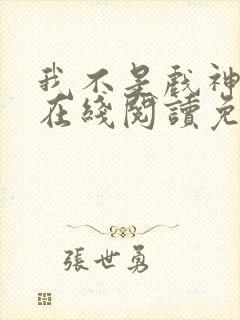 我不是戲神
在綫閱讀免
張世勇